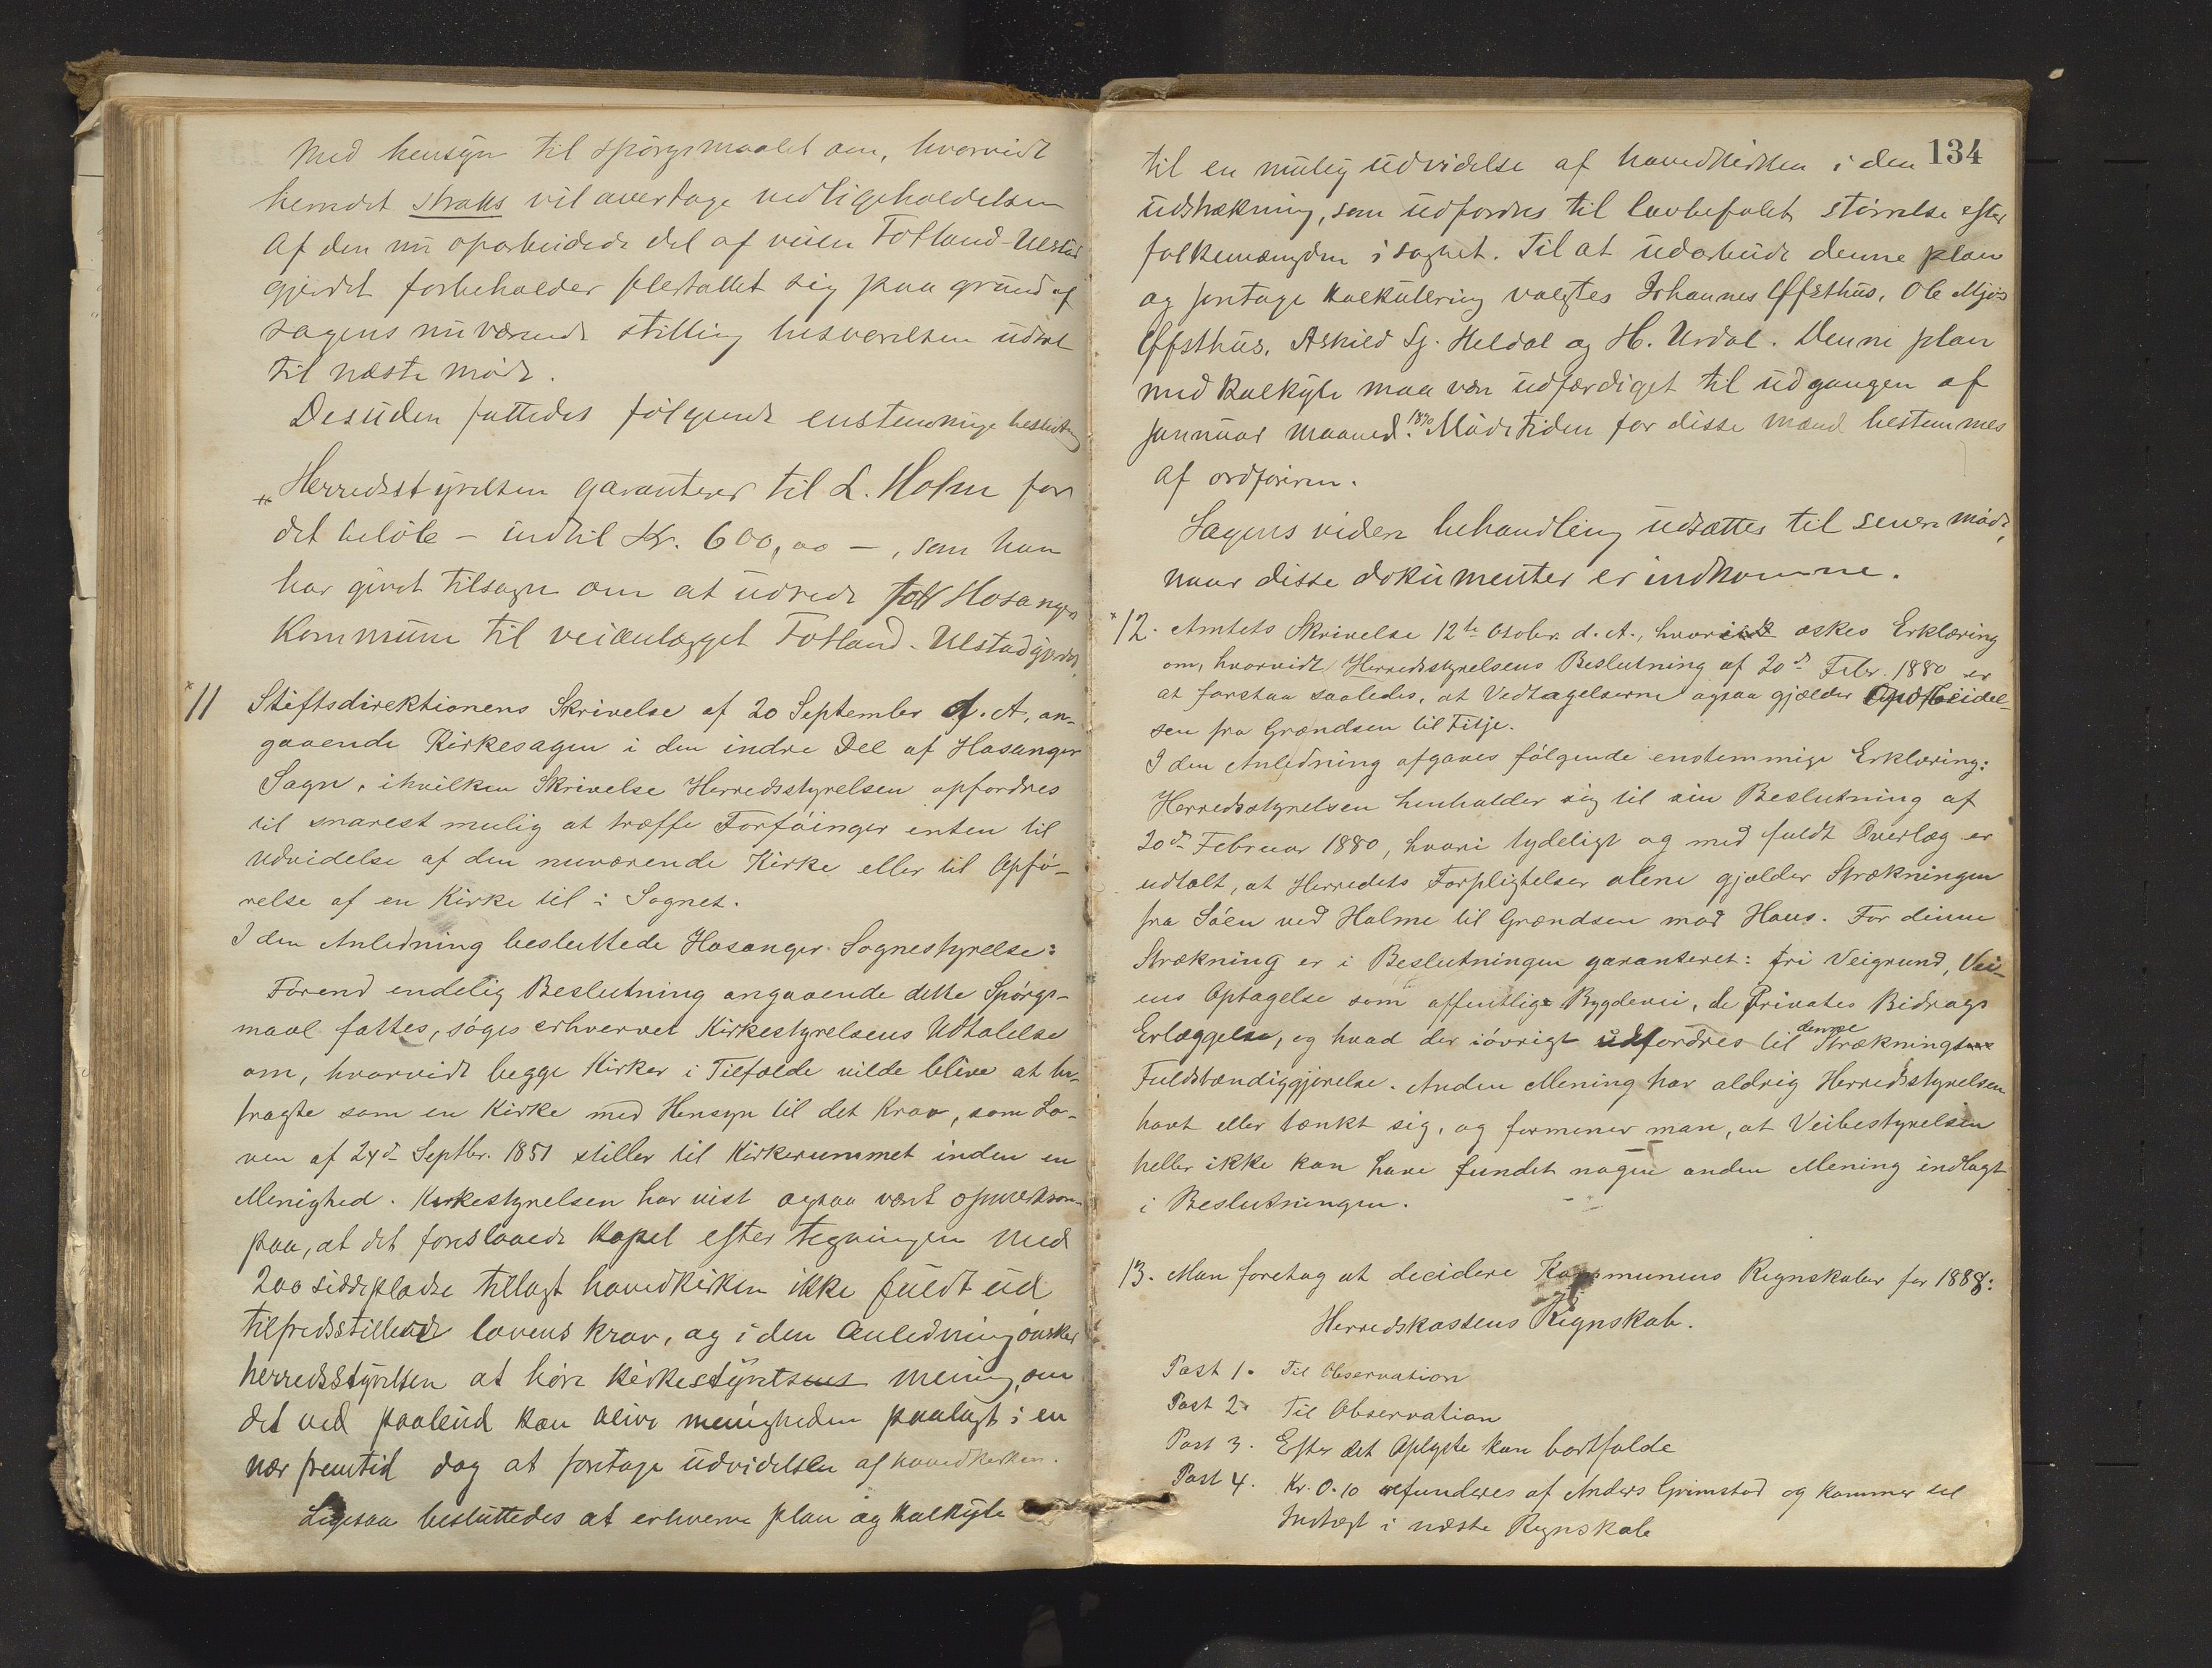 Med hensyn til spörgsmaalet om, hvorvidt
herredet straks vil overtage vedligeholdelsen
af den nu oparbeidede del af veien Fotland-Ulstad
gjerdet forbeholder flertallet sig paa grund af
sagens nuværende stilling besvarelsen udsat
til næste möde.
Desuden fattedes fölgende enstemmige beslutning
"Herredsstyrelsen garanterer til L. Holm for
det belöb – indtil Kr. 600,00 –, som han
har givet tilsagn om at udrede for Hosanger
Kommune til veianlægget Fotland-Ulstadgjerdet
*11 Stiftsdirektionens Skrivelse af 20 September d. A, an-
gaaende Kirkesagen i den indre Del af Hosanger
Sogn, i hvilken Skrivelse Herredsstyrelsen opfordres
til snarest mulig at træffe Forföinger enten til
Udvidelse af den nuværende Kirke eller til Opfö-
relse af en Kirke til i Sognet.
I den Anledning besluttede Hosanger Sognestyrelse:
Förend endelig Beslutning angaaende dette Spörgs-
maal fattes, söges erhvervet Kirkestyrelsens Udtalelse
om, hvorvidt begge Kirker i Tilfælde vilde blive at be-
tragte som en Kirke med Hensyn til det Krav, som Lo-
ven af 24d Septbr. 1851 stiller til Kirkerummet inden en
Menighed. Kirkestyrelsen har vist ogsaa været opmerksom
paa, at det foreslaaede Kapel efter tegningen med
200 siddepladse tillagt hovedkirken ikke fuldt ud
tilfredsstillende lovens krav, og i den Anledning önsker
herredsstyrelsen at höre kirkestyrelsens mening, om
det ved paabud kan blive menigheden paalagt i en
nær fremtid dog at foretage udvidelsen af hovedkirken.
Ligesaa besluttedes at erhverve plan og kalkyle
134
til en mulig udvidelse af hovedkirken i den
udstrækning, som udfordres til lovbefalet störrelse efter
folkemængden i sognet. Til at udarbeide denne plan
og foretage kalkulering valgtes Johannes Effsthus, Ole Mjös
Effsthus, Askild Sj. Heldal og H. Urdal. Denne plan
med kalkyle maa være udfærdiget til udgangen af
januar maaned 1890. Mödetiden for disse mænd bestemmes
af ordföreren.
Sagens videre behandling udsættes til senere möde,
naar disse dokumenter er indkomne.
*12. Amtets Skrivelse 12te Otober d. A., hvori æskes Erklæring
om, hvorvidt Herredsstyrelsens Beslutning af 20d Febr. 1880 er
at forstaa saaledes, at Vedtagelserne ogsaa gjælder Oparbeidel-
sen fra Grændsen til Titje.
I den Anledning afgaves fölgende enstemmige Erklæring:
Herredsstyrelsen henholder sig til sin Beslutning af
20d Februar 1880, hvori tydeligt og med fuldt Overlæg er
udtalt, at Herredets Forpligtelser alene gjælder Strækningen
fra Söen ved Holme til Grændsen mod Haus. For denne
Strækning er i Beslutningen garanteret: fri Veigrund, Vei-
ens Optagelse som offentlig Bygdevei, de Privates Bidrags
Erlæggelse, og hvad der iövrigt udfordres til denne Stræknings
Fuldstændiggjörelse. Anden Mening har aldrig Herredsstyrelsen
havt eller tænkt sig, og formener man, at Veibestyrelsen
heller ikke kan have fundet nogen anden Mening indlagt
i Beslutningen.
13. Man foretog at decidere Kommunens Regnskaber for 1888:
Herredskassens Regnskab.
Post 1. Til Observation
Post 2. Til Observation
Post 3. Efter det Oplyste kan bortfalde
Post 4. Kr. 0.10 refunderes af Anders Grimstad og kommer til
Indtægt i næste Regnskab